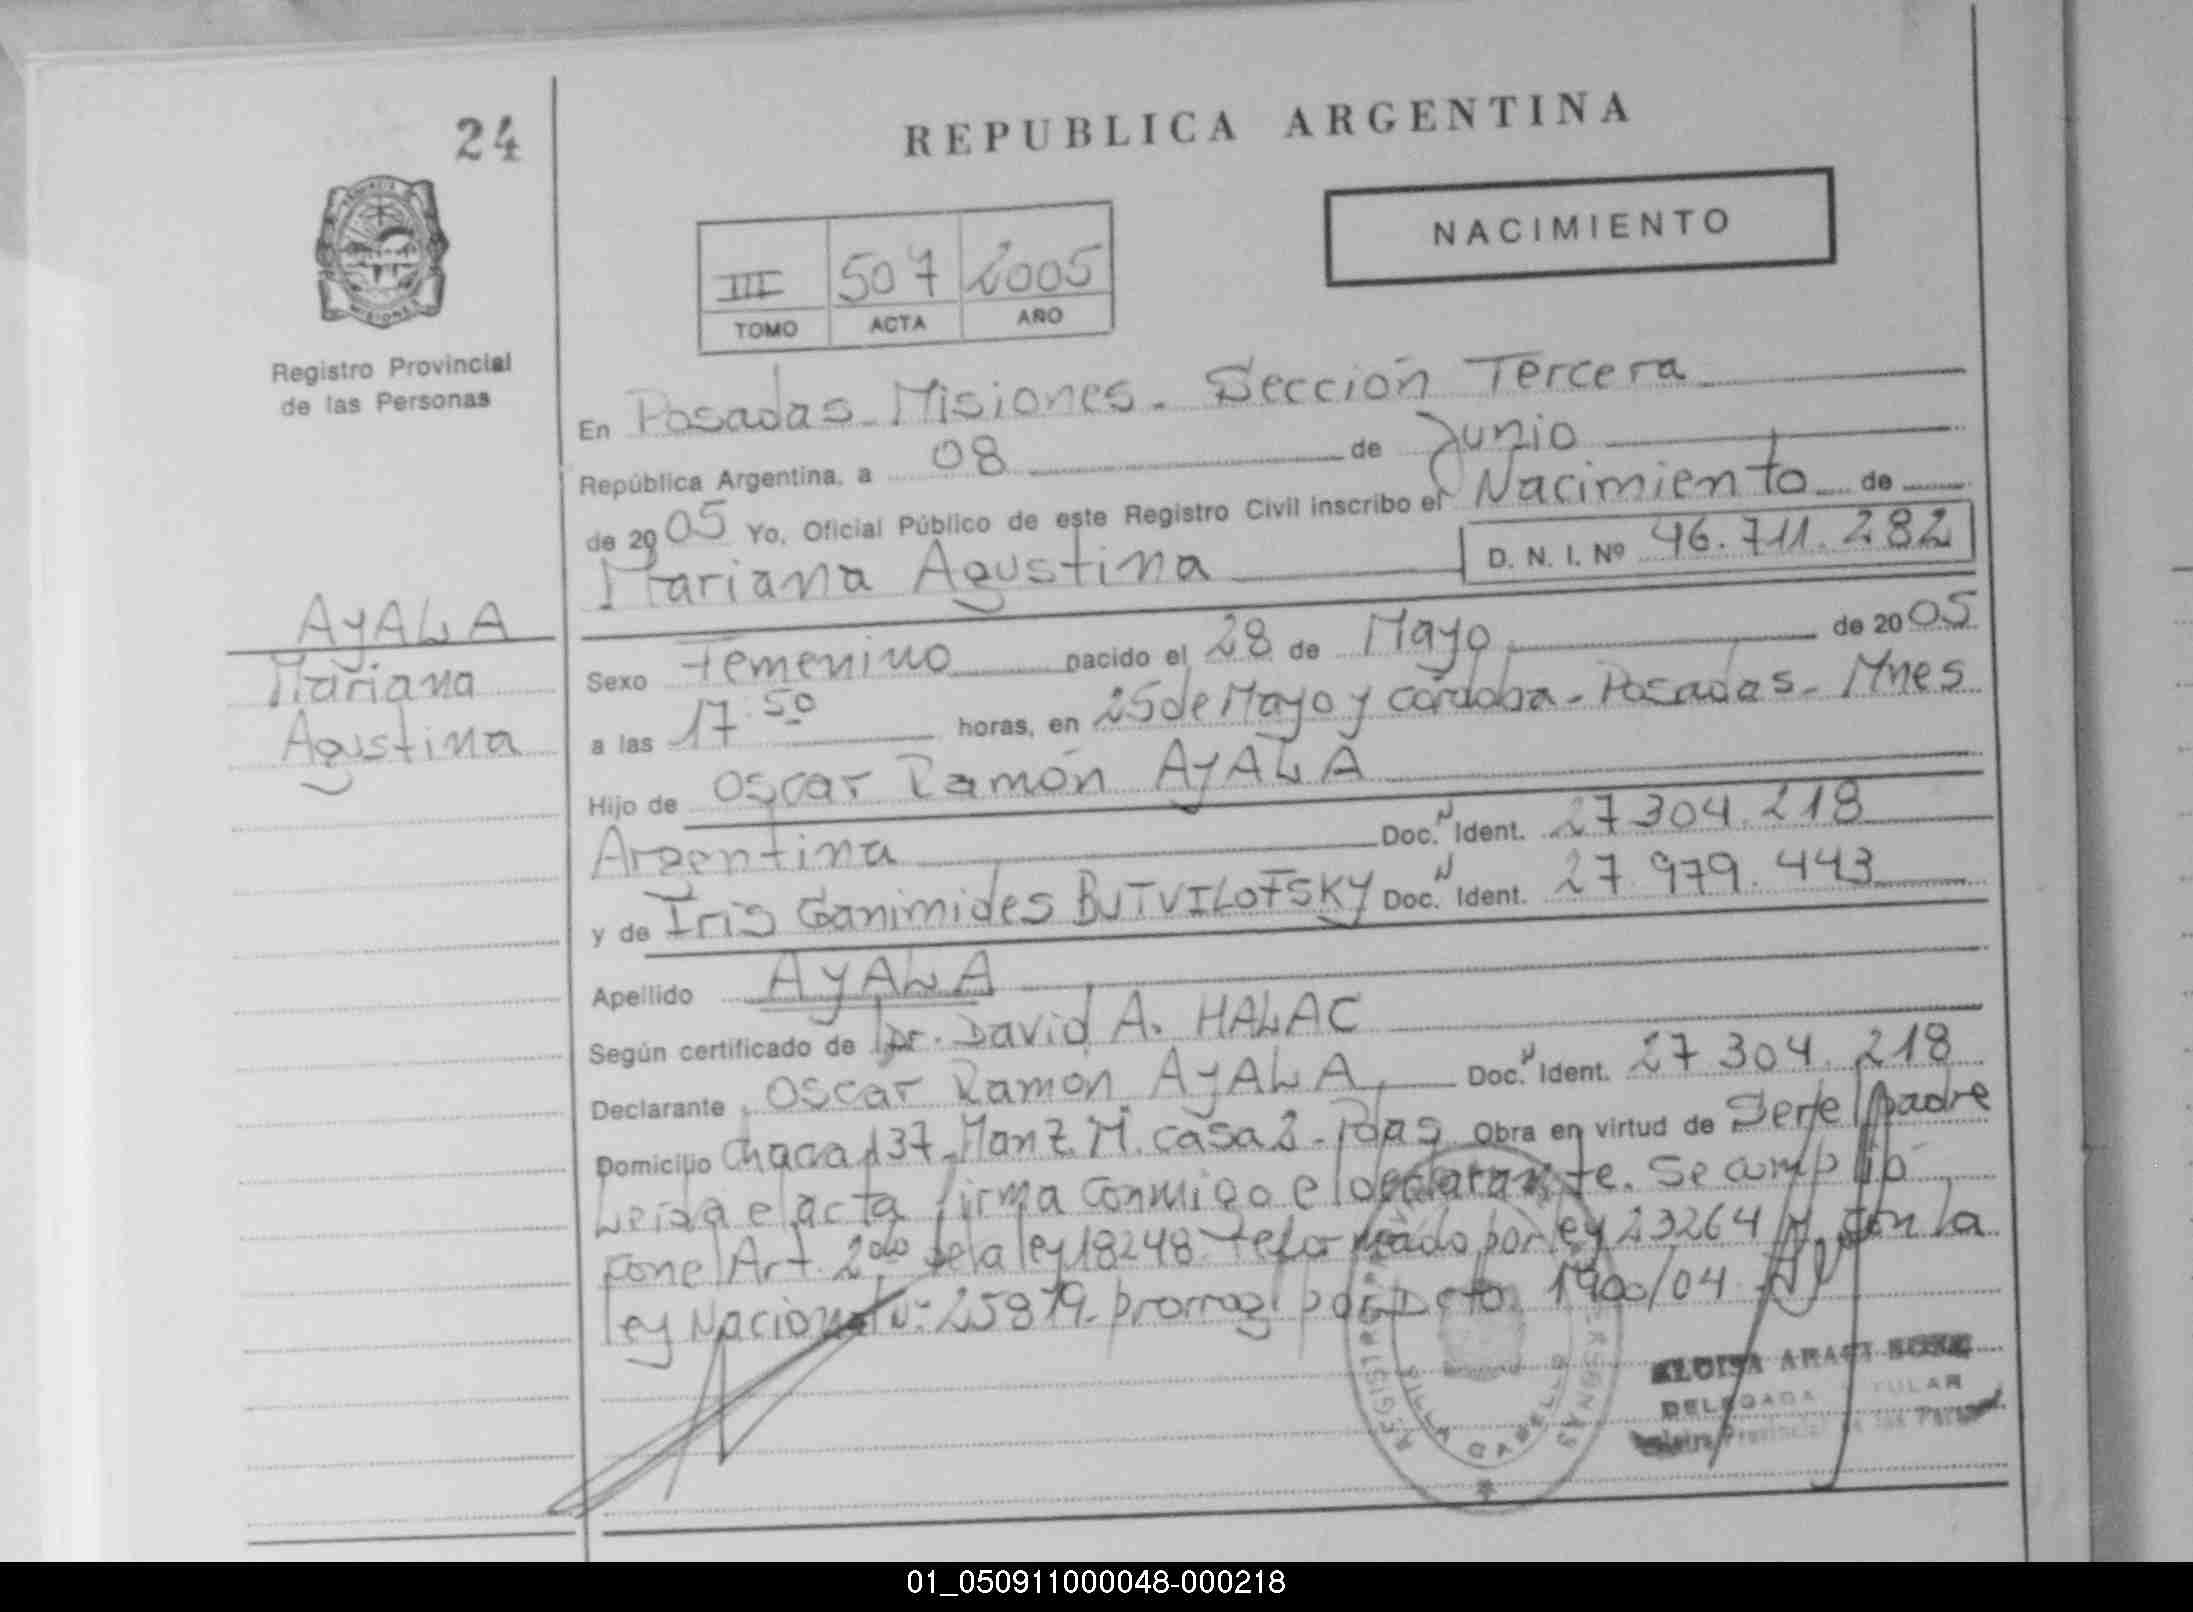 24
REPUBLICA ARGENTINA
NACIMIENTO
III 507 2005
TOMO ACTA AÑO
Registro Provincial
de las Personas
En Posadas - Misiones - Sección Tercera
República Argentina, a 08 de Junio
de 2005 Yo, Oficial Público de este Registro Civil inscribo el Nacimiento de
Mariana Agustina D. N. I. Nº 46.711.282
AYALA
Mariana
Agustina
Sexo Femenino nacido el 28 de Mayo de 2005
a las 17.50 horas, en 25 de Mayo y Córdoba - Posadas - Mnes
Hijo de Oscar Ramón AYALA
Argentina Doc. N Ident. 27 304.218
y de Iris Ganimides BUTVILOFSKY Doc. N Ident. 27.979.443
Apellido AYALA
Según certificado de Dr. David A. HALAC
Declarante Oscar Ramón AYALA Doc. N Ident. 27 304.218
Domicilio Chacra 137 - Manz. M. casa 2 - Pdas Obra en virtud de Ser el padre
Leida el acta firma conmigo el declarante. Se cumplió
con el Art. 2do de la ley 18248 - reformado por ley 23264 y con la
ley Nacional N: 25819 - prorrog. por Dcto. 1900/04
REGISTRO PERSONAS
VILLA CABELLO
ELOISA
DELEGADA TITULAR
Registro Provincial de las Personas
01_050911000048-000218